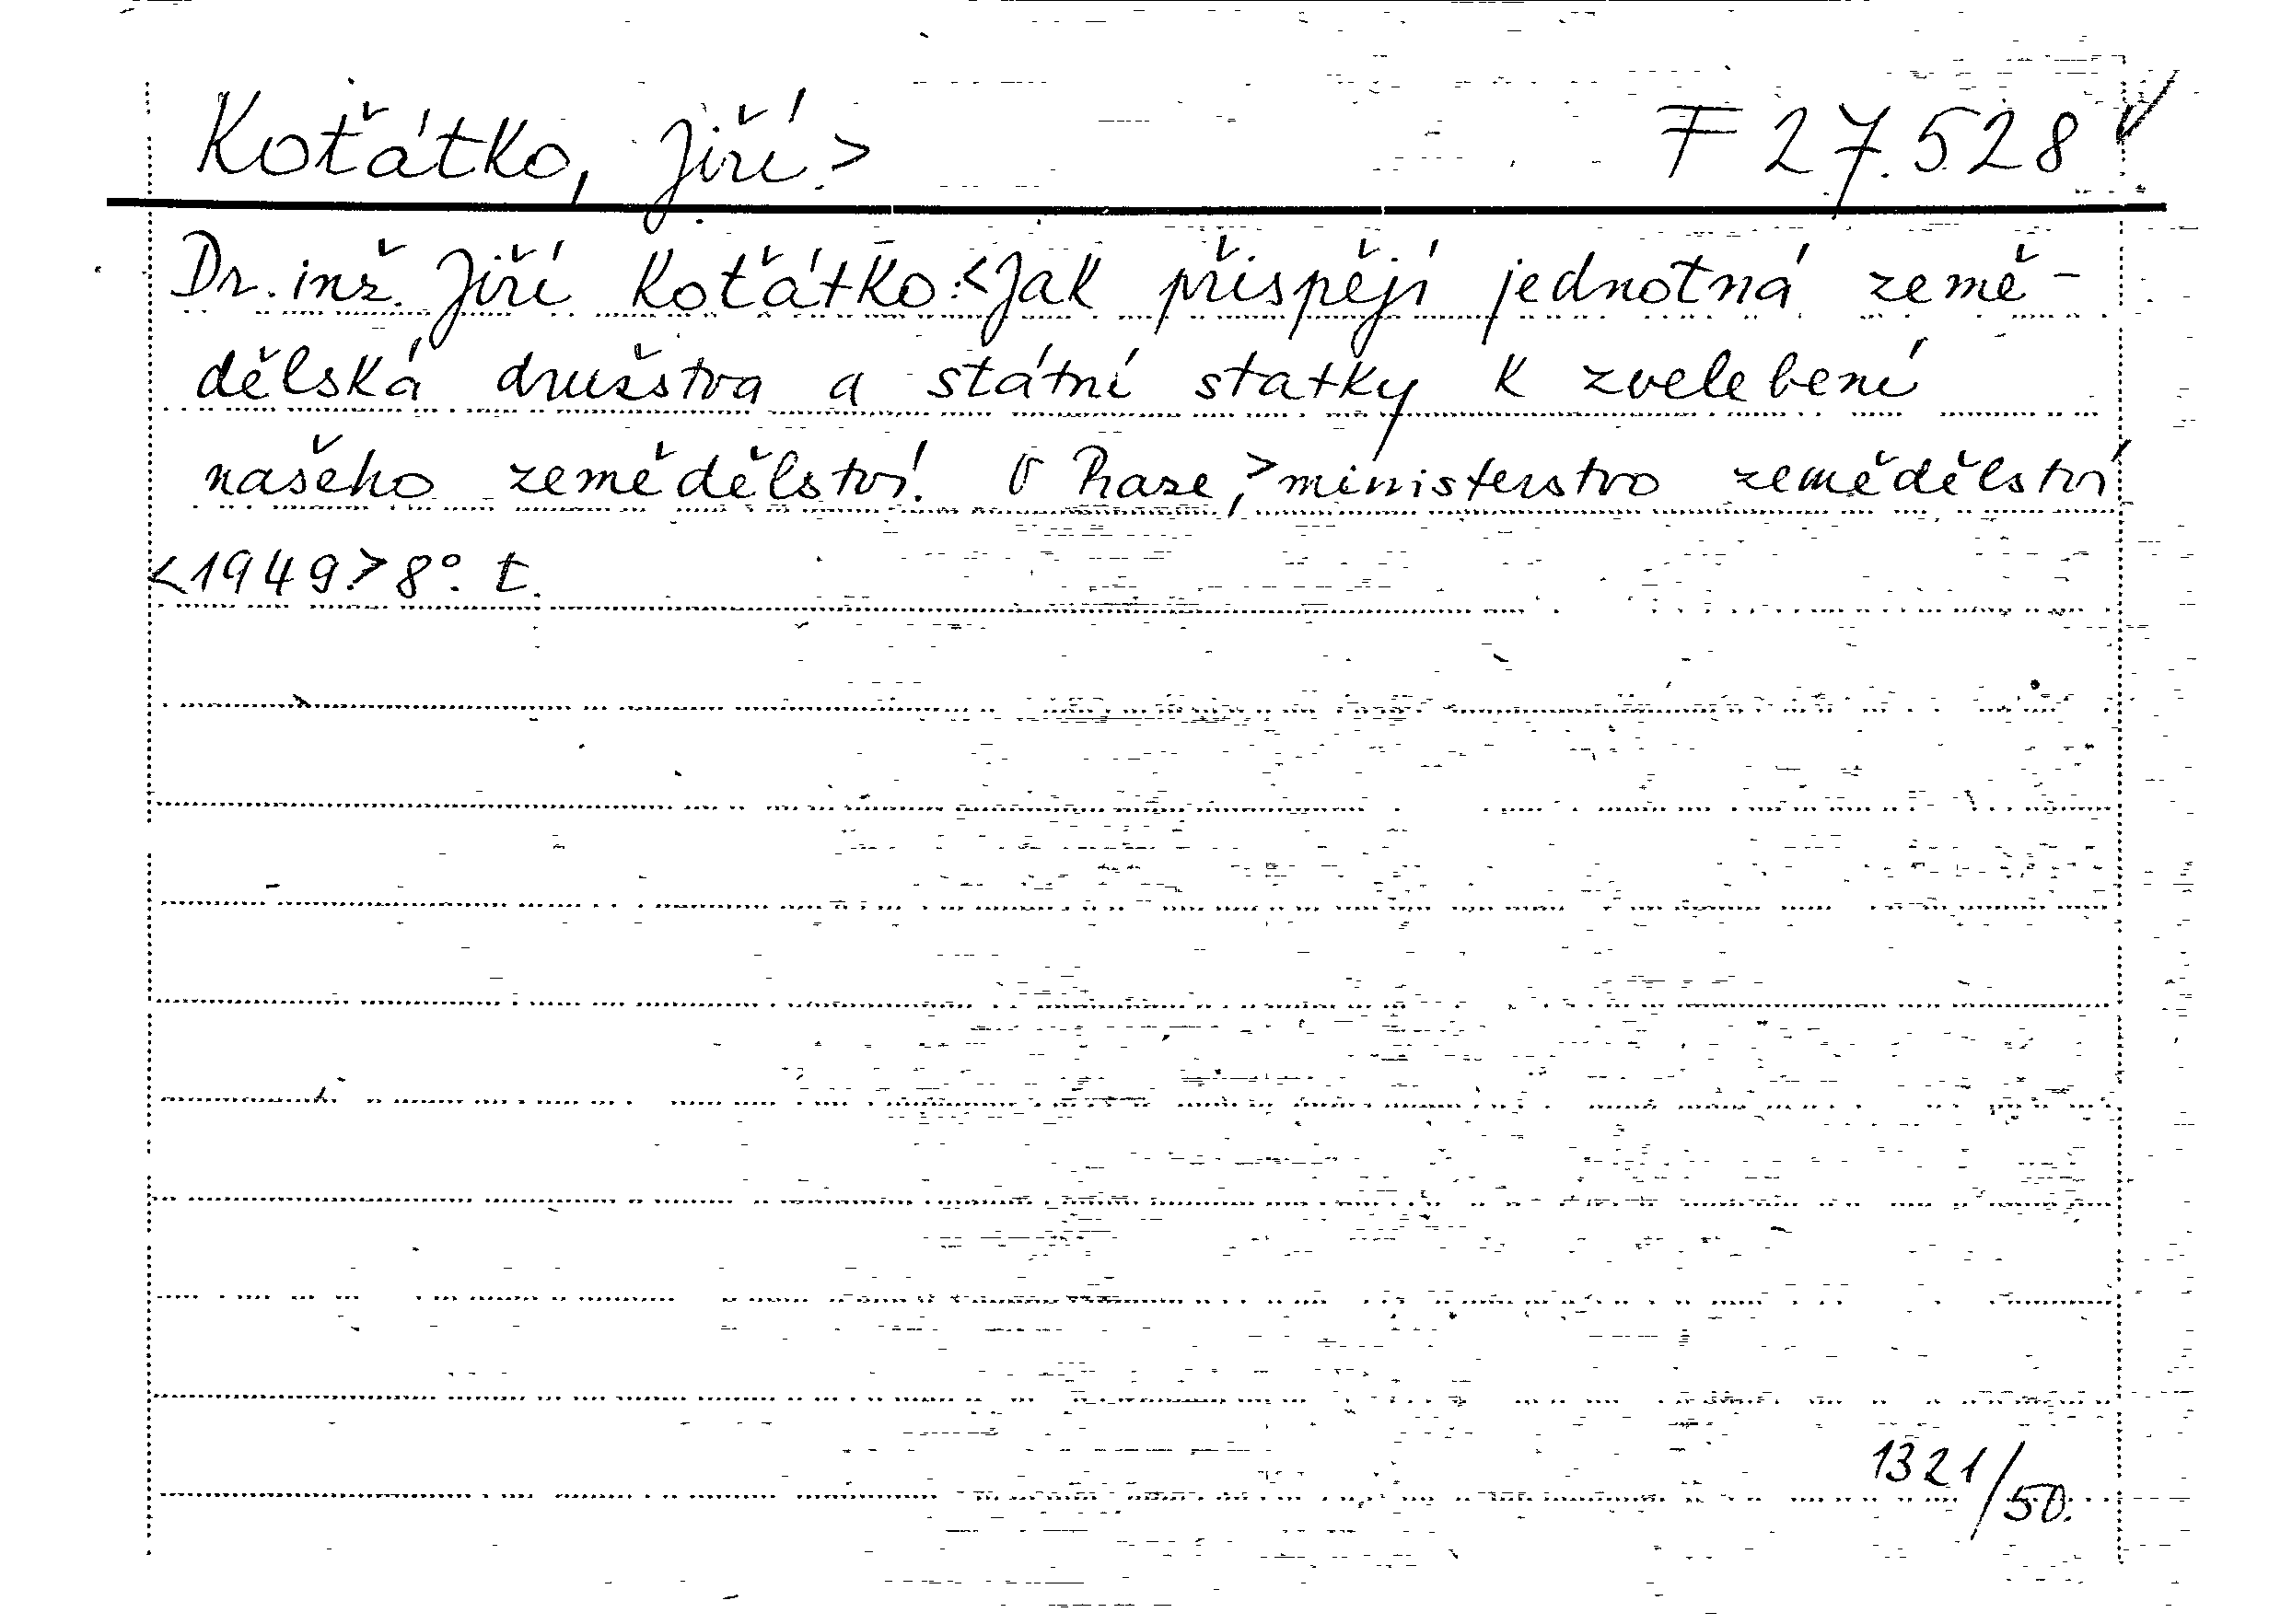 Koťátko, Jiří.> F 27.528 V
Dr. inž. Jiří Koťátko:<Jak přispějí jednotná země-
dělská družstva a státní statky k zvelebení
našeho zemědělství. V Praze,>ministerstvo zemědělství
<1949.> 8°. t.
1321/50.